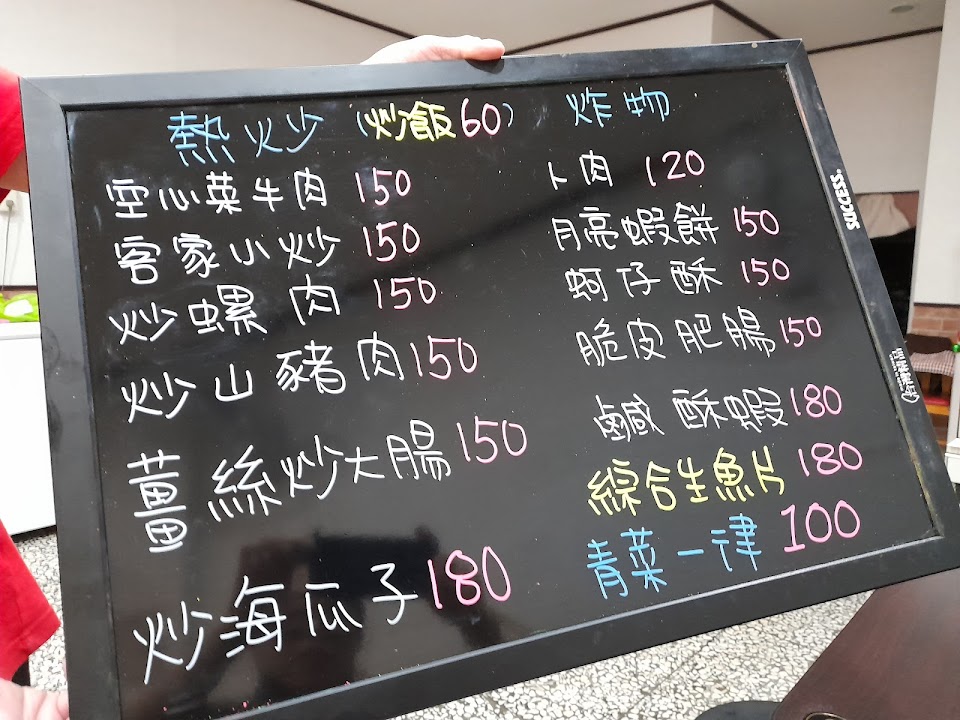 熱炒（炒飯60）
空心菜牛肉 150
客家小炒 150
炒螺肉 150
炒山豬肉 150
薑絲炒大腸 150
炒海瓜子 180
炸物
卜肉 120
月亮蝦餅 150
蚵仔酥 150
脆皮肥腸 150
鹹酥蝦 180
綜合生魚片 180
青菜一律 100
SUCCESS.